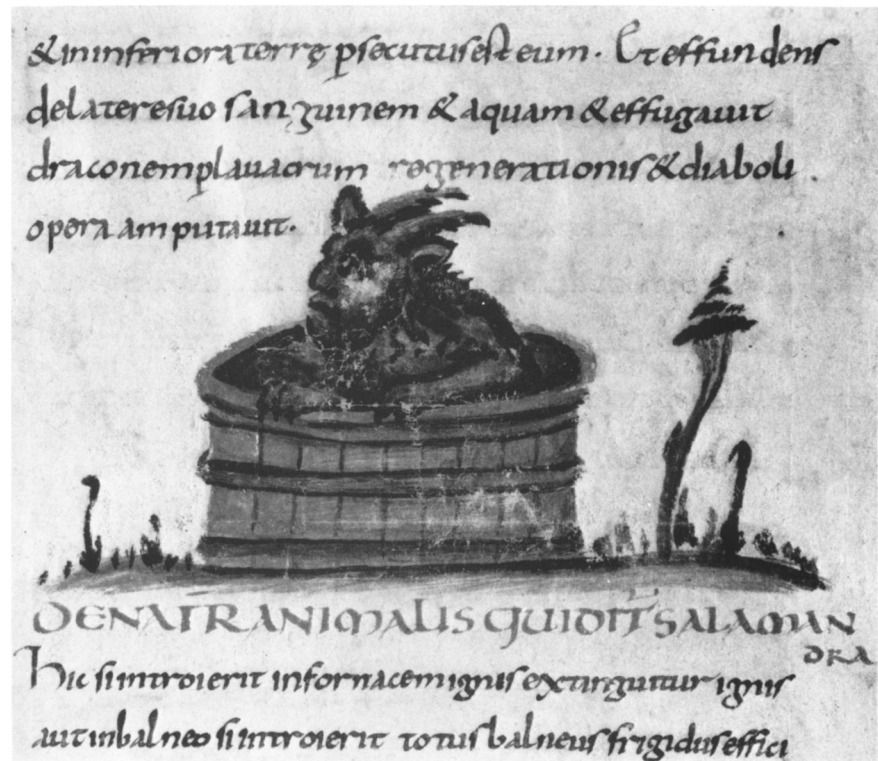 &ininferiora terrę psecutus est eum. Et effundens
de latere suo sanguinem & aquam & effugauit
draconem p lauacrum regenerationis & diaboli
opera amputauit.
DE NATR ANIMALIS QUI DIT SALAMAN
DRA
Hic si introierit in fornacem ignis extinguitur ignis
aut in balneo si introierit totus balneus frigidus effici